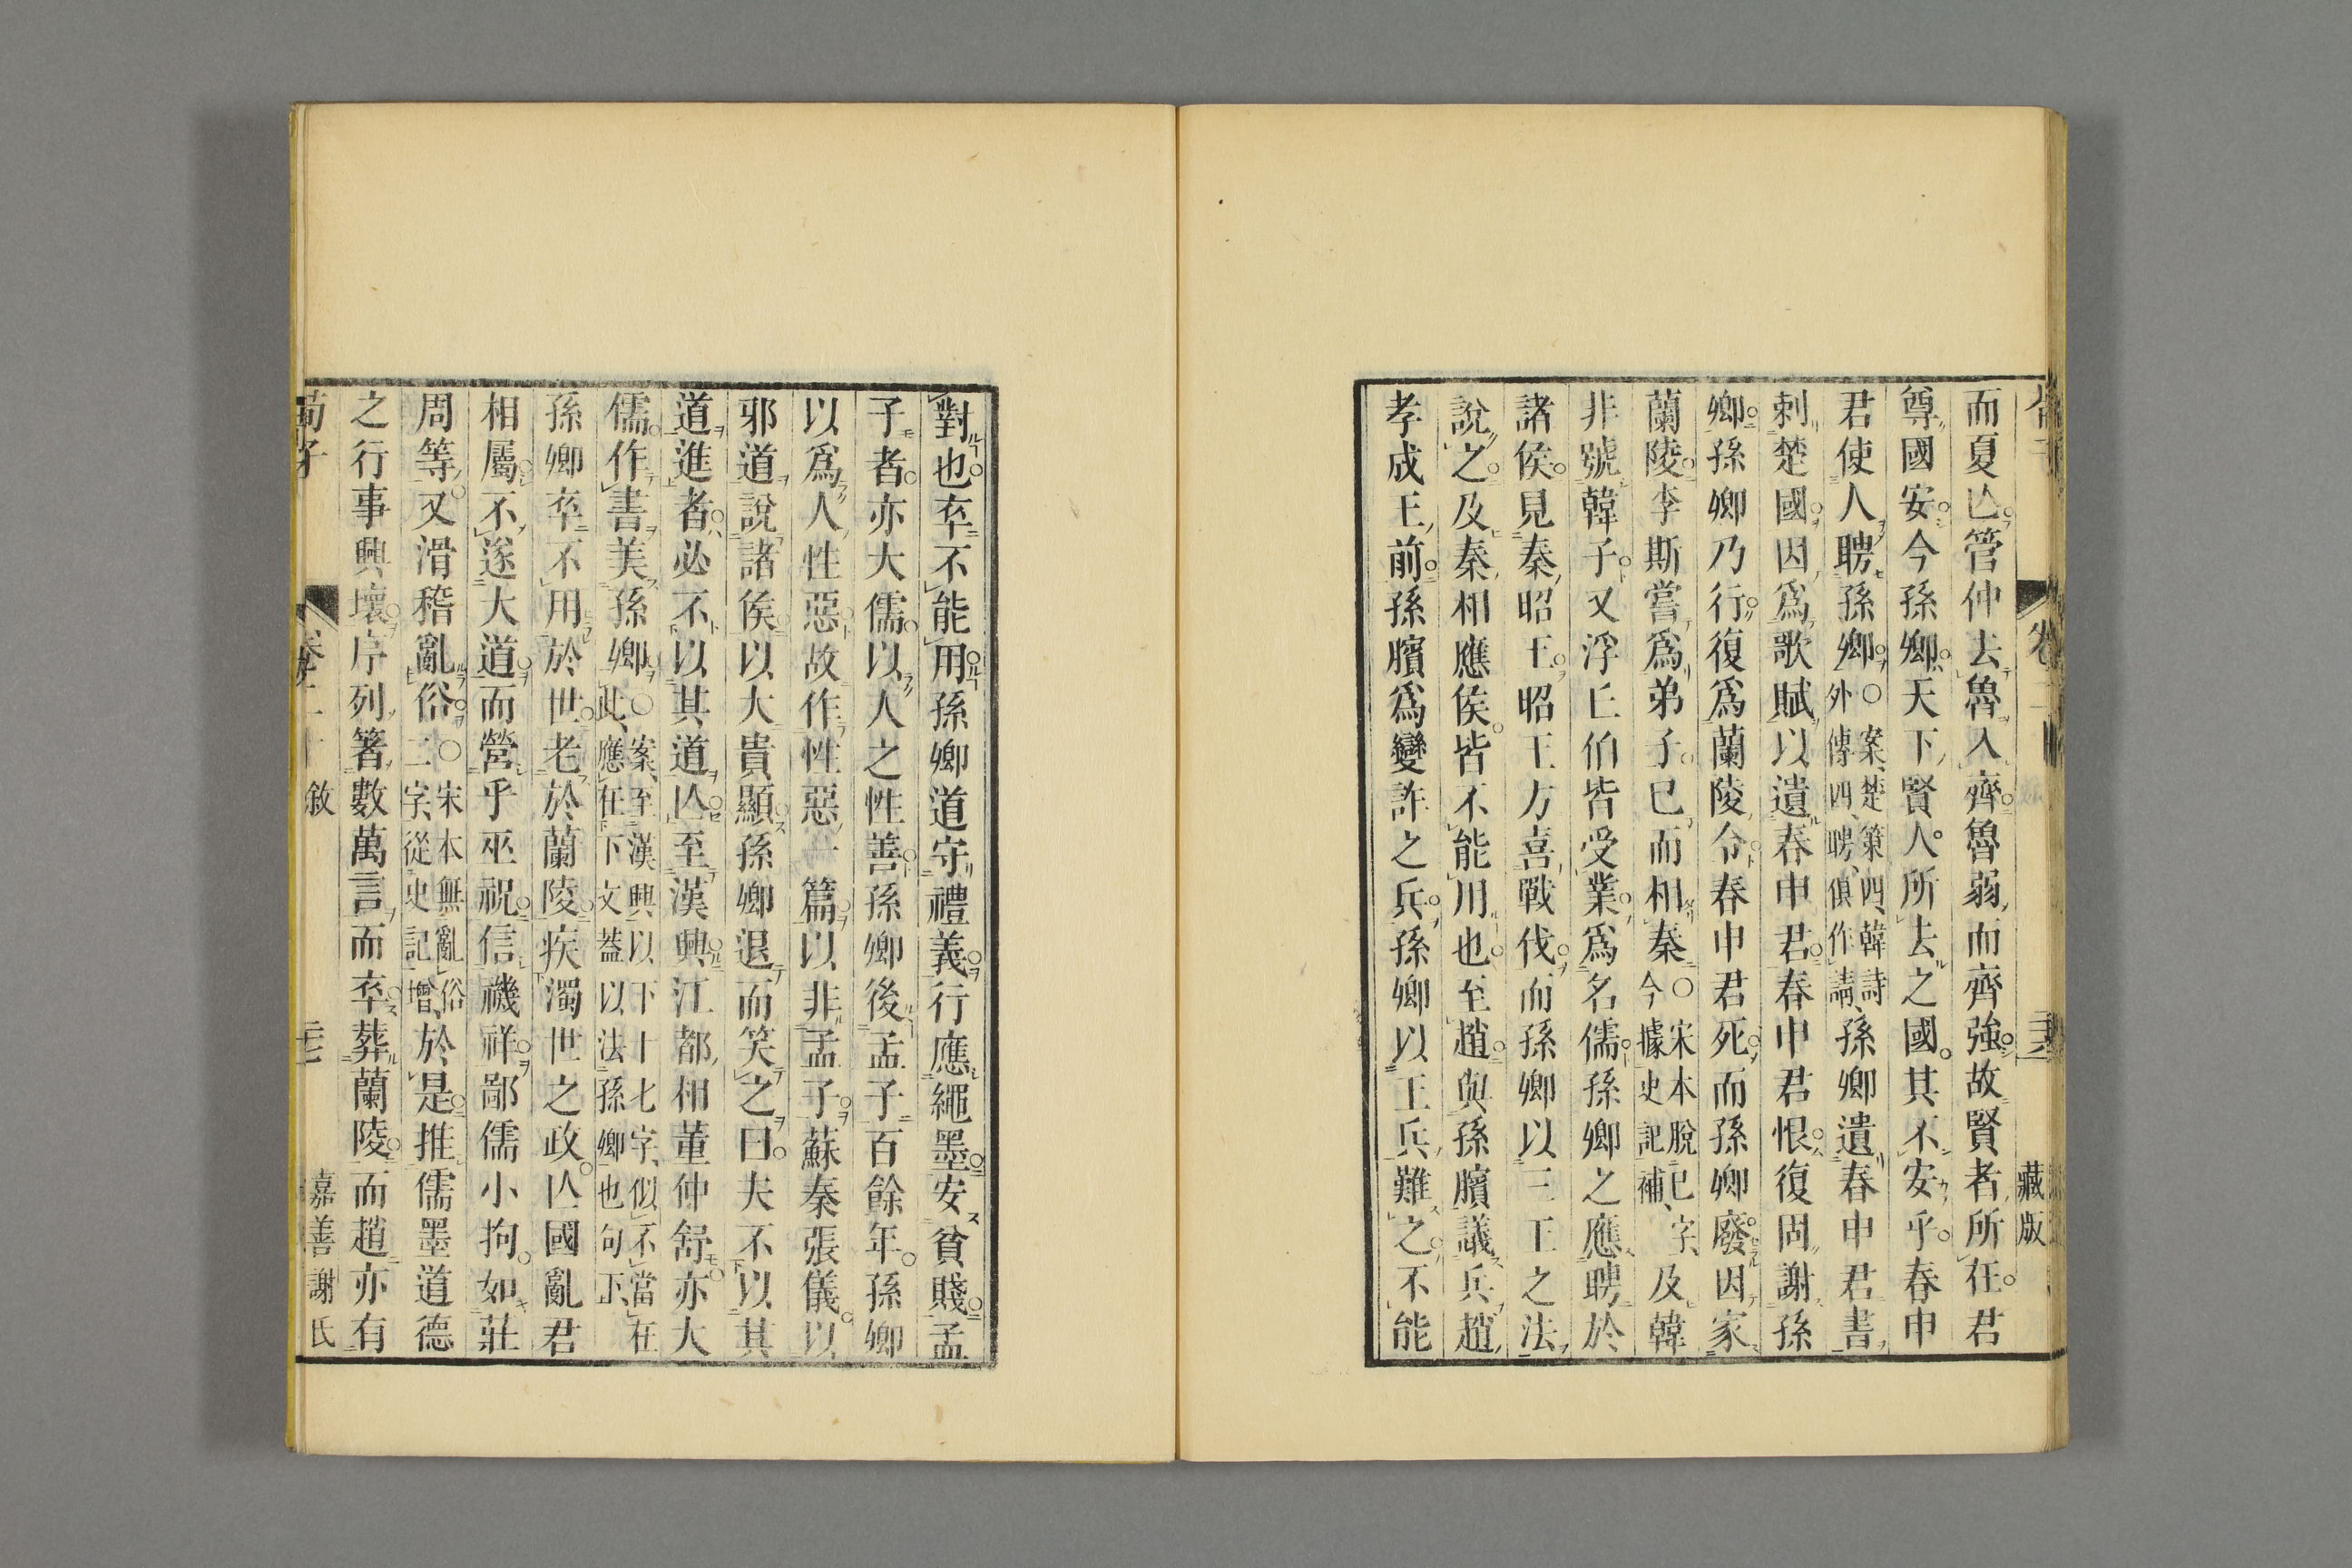 藏版
而夏亾管仲去魯入齊魯弱而齊強故賢者所在君
尊國安今孫卿天下賢人所去之國其不安乎春申
君使人聘孫卿○案楚策四韓詩外傳四聘俱作請孫卿遺春申君書
刺楚國因爲歌賦以遺春申君春申君恨復固謝孫
卿孫卿乃行復爲蘭陵令春申君死而孫卿廢因家
蘭陵李斯嘗爲弟子已而相秦○宋本脫已字今據史記補及韓
非號韓子又浮丘伯皆受業爲名儒孫卿之應聘於
諸侯見秦昭王昭王方喜戰伐而孫卿以三王之法
說之及秦相應侯皆不能用也至趙與孫臏議兵趙
孝成王前孫臏爲變詐之兵孫卿以王兵難之不能
對也卒不能用孫卿道守禮義行應繩墨安貧賤孟
子者亦大儒以人之性善孫卿後孟子百餘年孫卿
以爲人性惡故作性惡一篇以非孟子蘇秦張儀以
邪道說諸侯以大貴顯孫卿退而笑之曰夫不以其
道進者必不以其道亾至漢興江都相董仲舒亦大
儒作書美孫卿○案至漢興以下十七字似不當在此應在下文蓋以法孫卿也句下
孫卿卒不用於世老於蘭陵疾濁世之政亾國亂君
相屬不遂大道而營乎巫祝信禨祥鄙儒小拘如莊
周等又滑稽亂俗○宋本無亂俗二字從史記增於是推儒墨道德
之行事興壞序列著數萬言而卒葬蘭陵而趙亦有
荀子 卷二十 敘 三七 嘉善謝氏